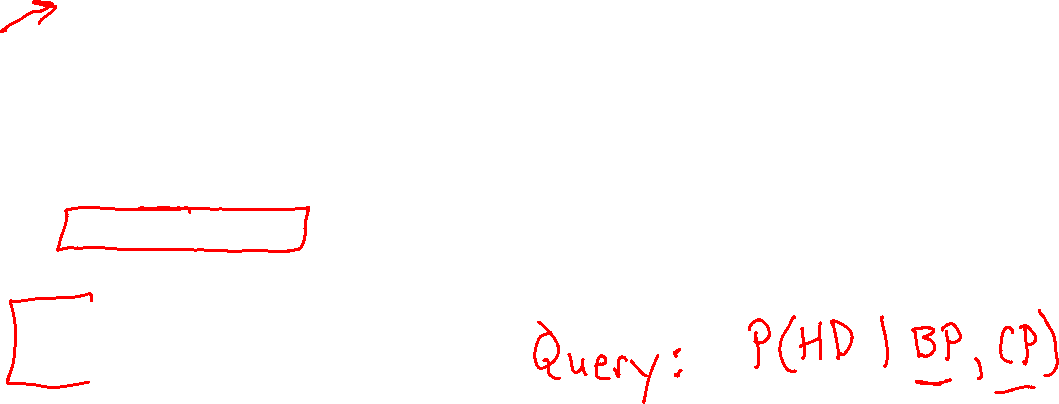 Query: P(HD | BP, CP)